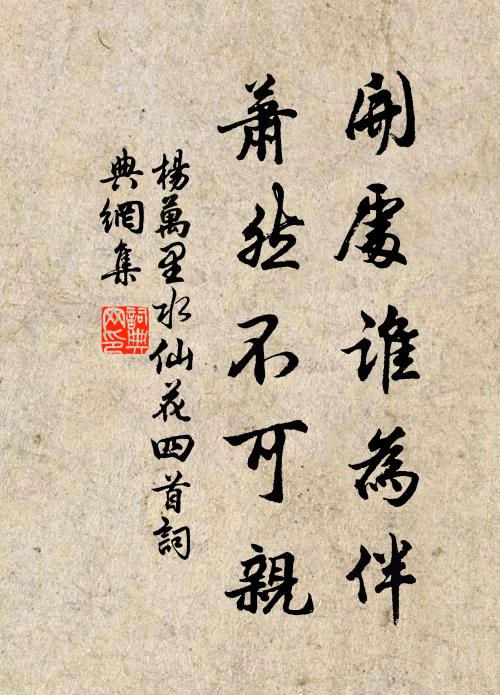 開處誰為伴
蕭然不可親
楊萬里水仙花四首詞
典網集
詞典
网印